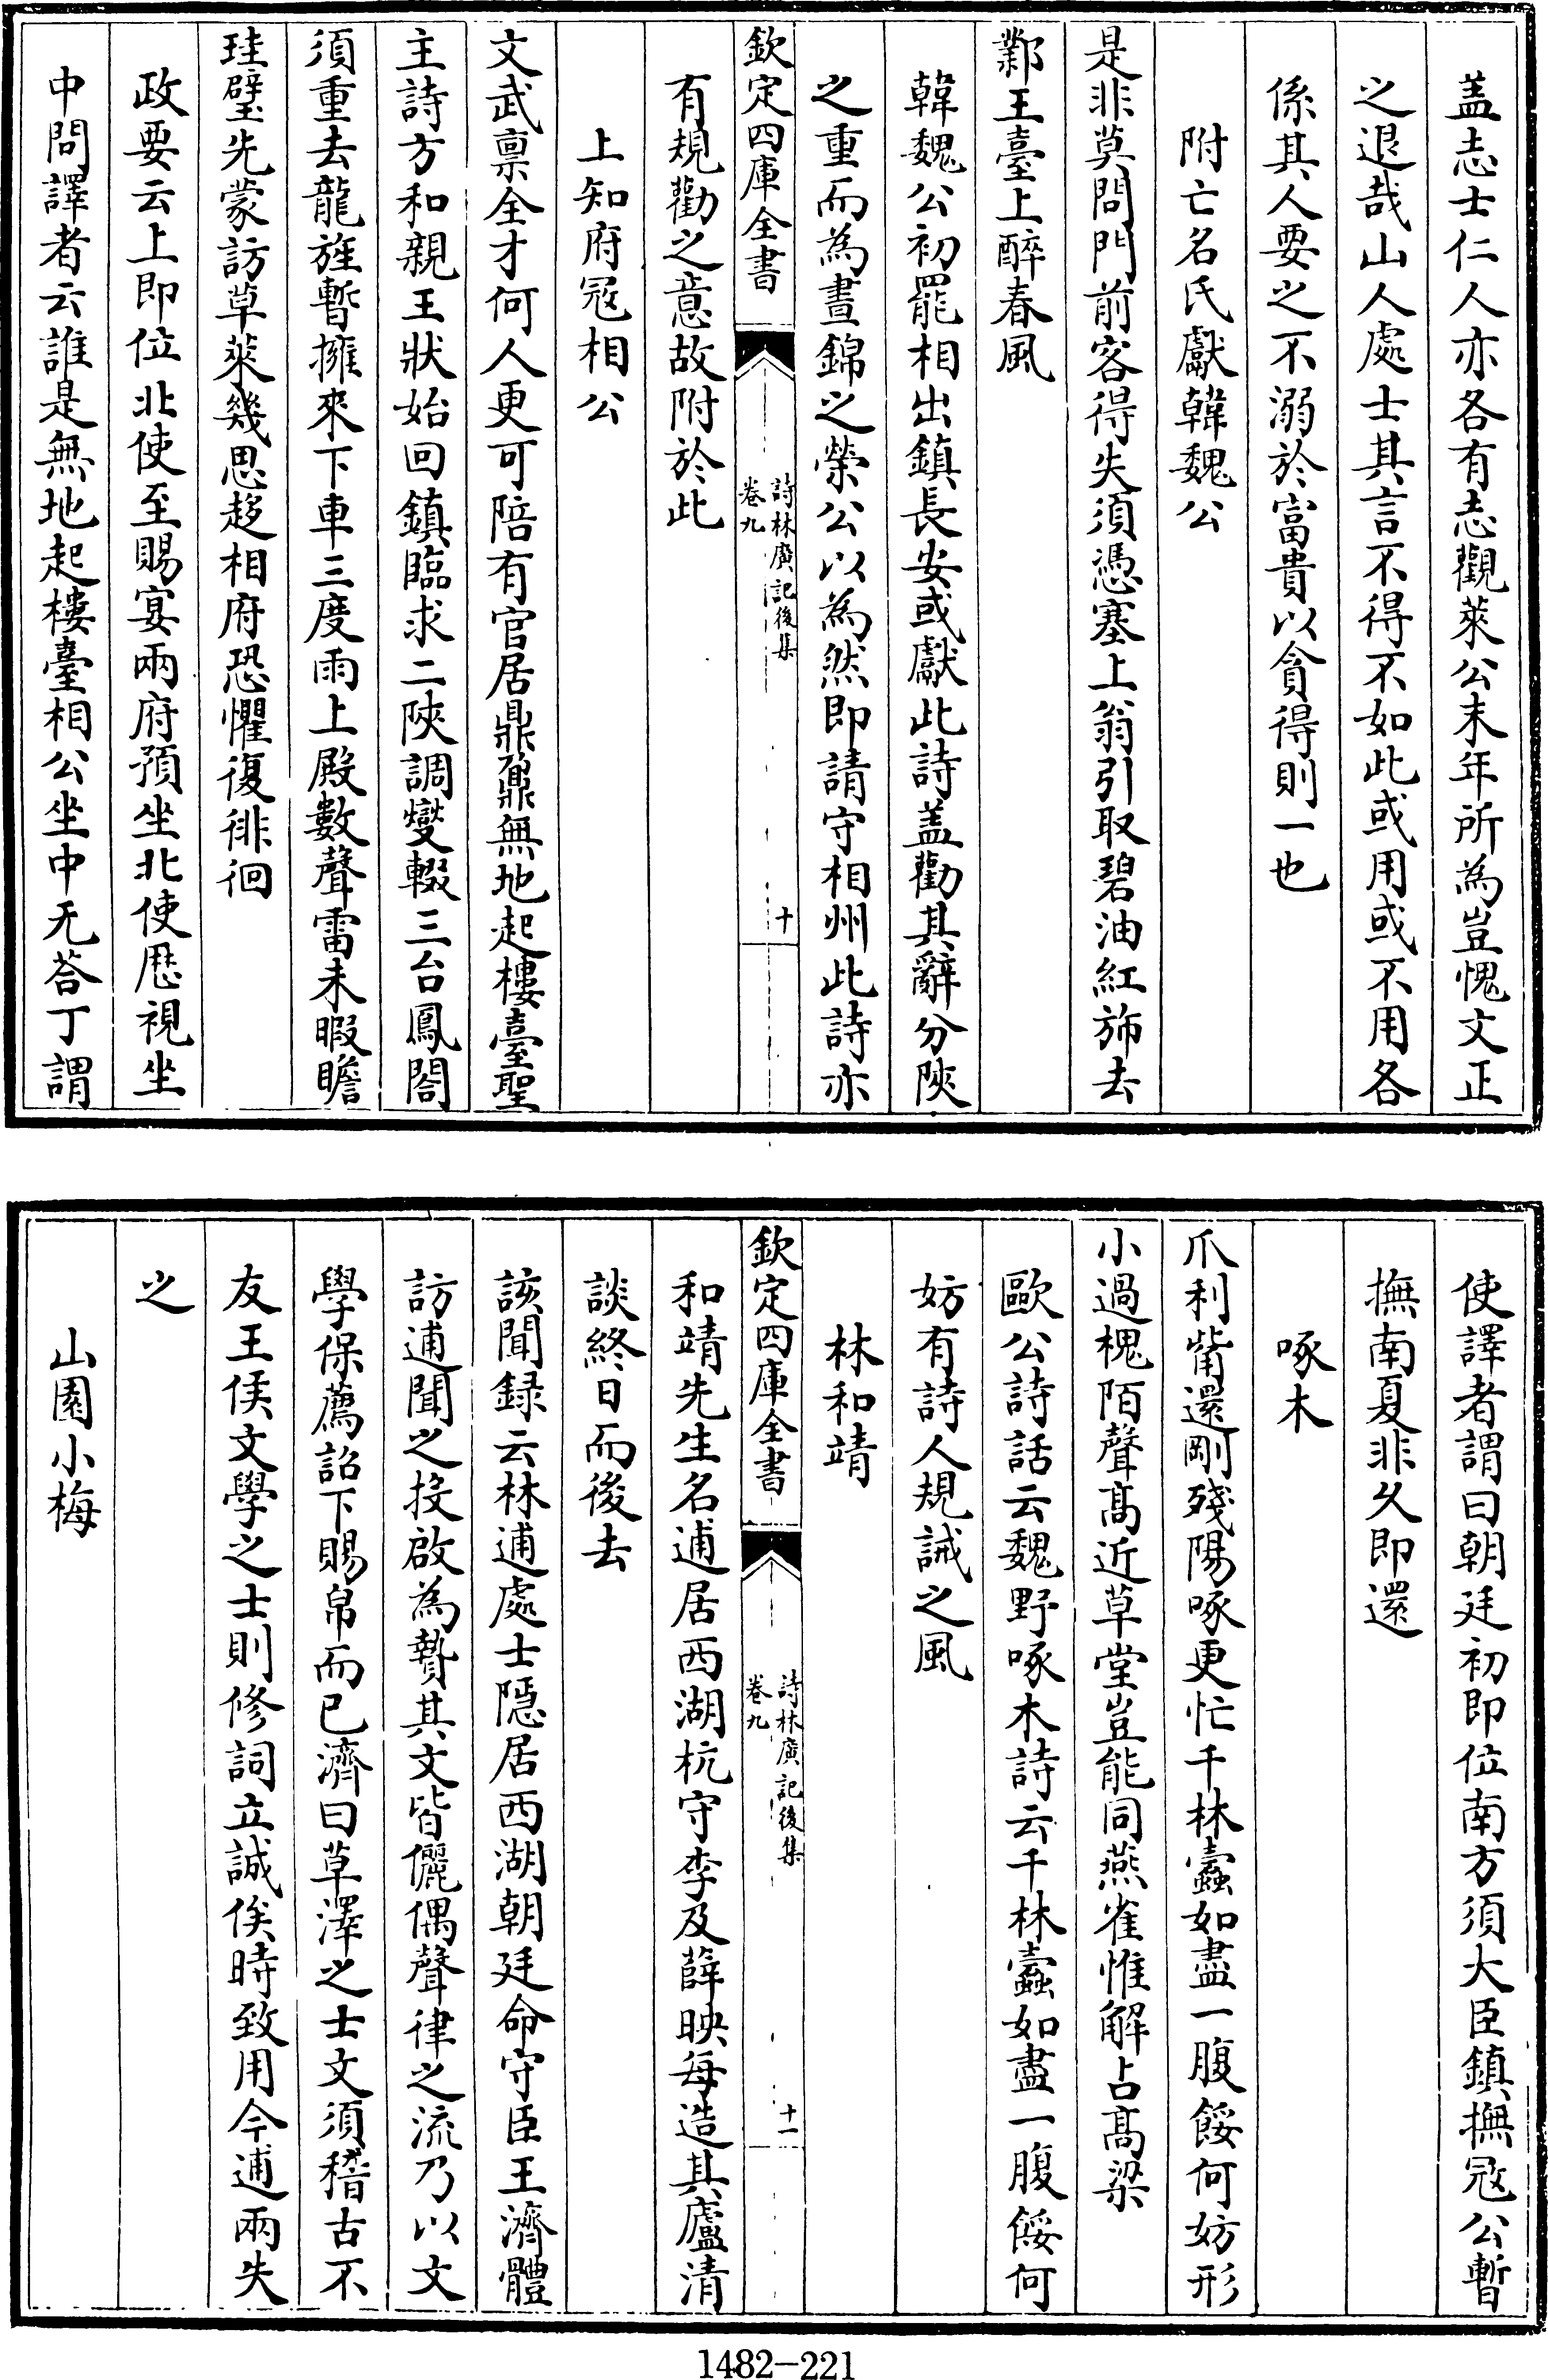 盖志士仁人亦各有志觀萊公末年所為豈愧文正
之退哉山人處士其言不得不如此或用或不用各
係其人要之不溺於富貴以貪得則一也
附亡名氏獻韓魏公
是非莫問門前客得失須憑塞上翁引取碧油紅斾去
鄴王臺上醉春風
韓魏公初罷相出鎮長安或獻此詩盖勸其辭分陜
之重而為晝錦之榮公以為然即請守相州此詩亦
欽定四庫全書
詩林廣記後集
卷九
十
有規勸之意故附於此
上知府寇相公
文武禀全才何人更可陪有官居鼎鼐無地起樓臺聖
主詩方和親王狀始回鎮臨求二陜調燮輟三台鳳閣
須重去龍旌暫擁來下車三度雨上殿數聲雷未暇瞻
珪璧先蒙訪草萊幾思趍相府恐懼復徘徊
政要云上即位北使至賜宴兩府預坐北使歷視坐
中問譯者云誰是無地起樓臺相公坐中无荅丁謂
使譯者謂曰朝廷初即位南方須大臣鎮撫寇公暫
撫南夏非久即還
啄木
爪利觜還剛殘陽啄更忙千林蠹如盡一腹餒何妨形
小過槐陌聲髙近草堂豈能同燕雀惟解占髙梁
歐公詩話云魏野啄木詩云千林蠹如盡一腹餒何
妨有詩人規誡之風
林和靖
欽定四庫全書
詩林廣記後集
卷九
十一
和靖先生名逋居西湖杭守李及薛映每造其廬清
談終日而後去
該聞録云林逋處士隱居西湖朝廷命守臣王濟體
訪逋聞之投啟為贄其文皆儷偶聲律之流乃以文
學保薦詔下賜帛而已濟曰草澤之士文須稽古不
友王侯文學之士則修詞立誠俟時致用今逋兩失
之
山園小梅
1482-221